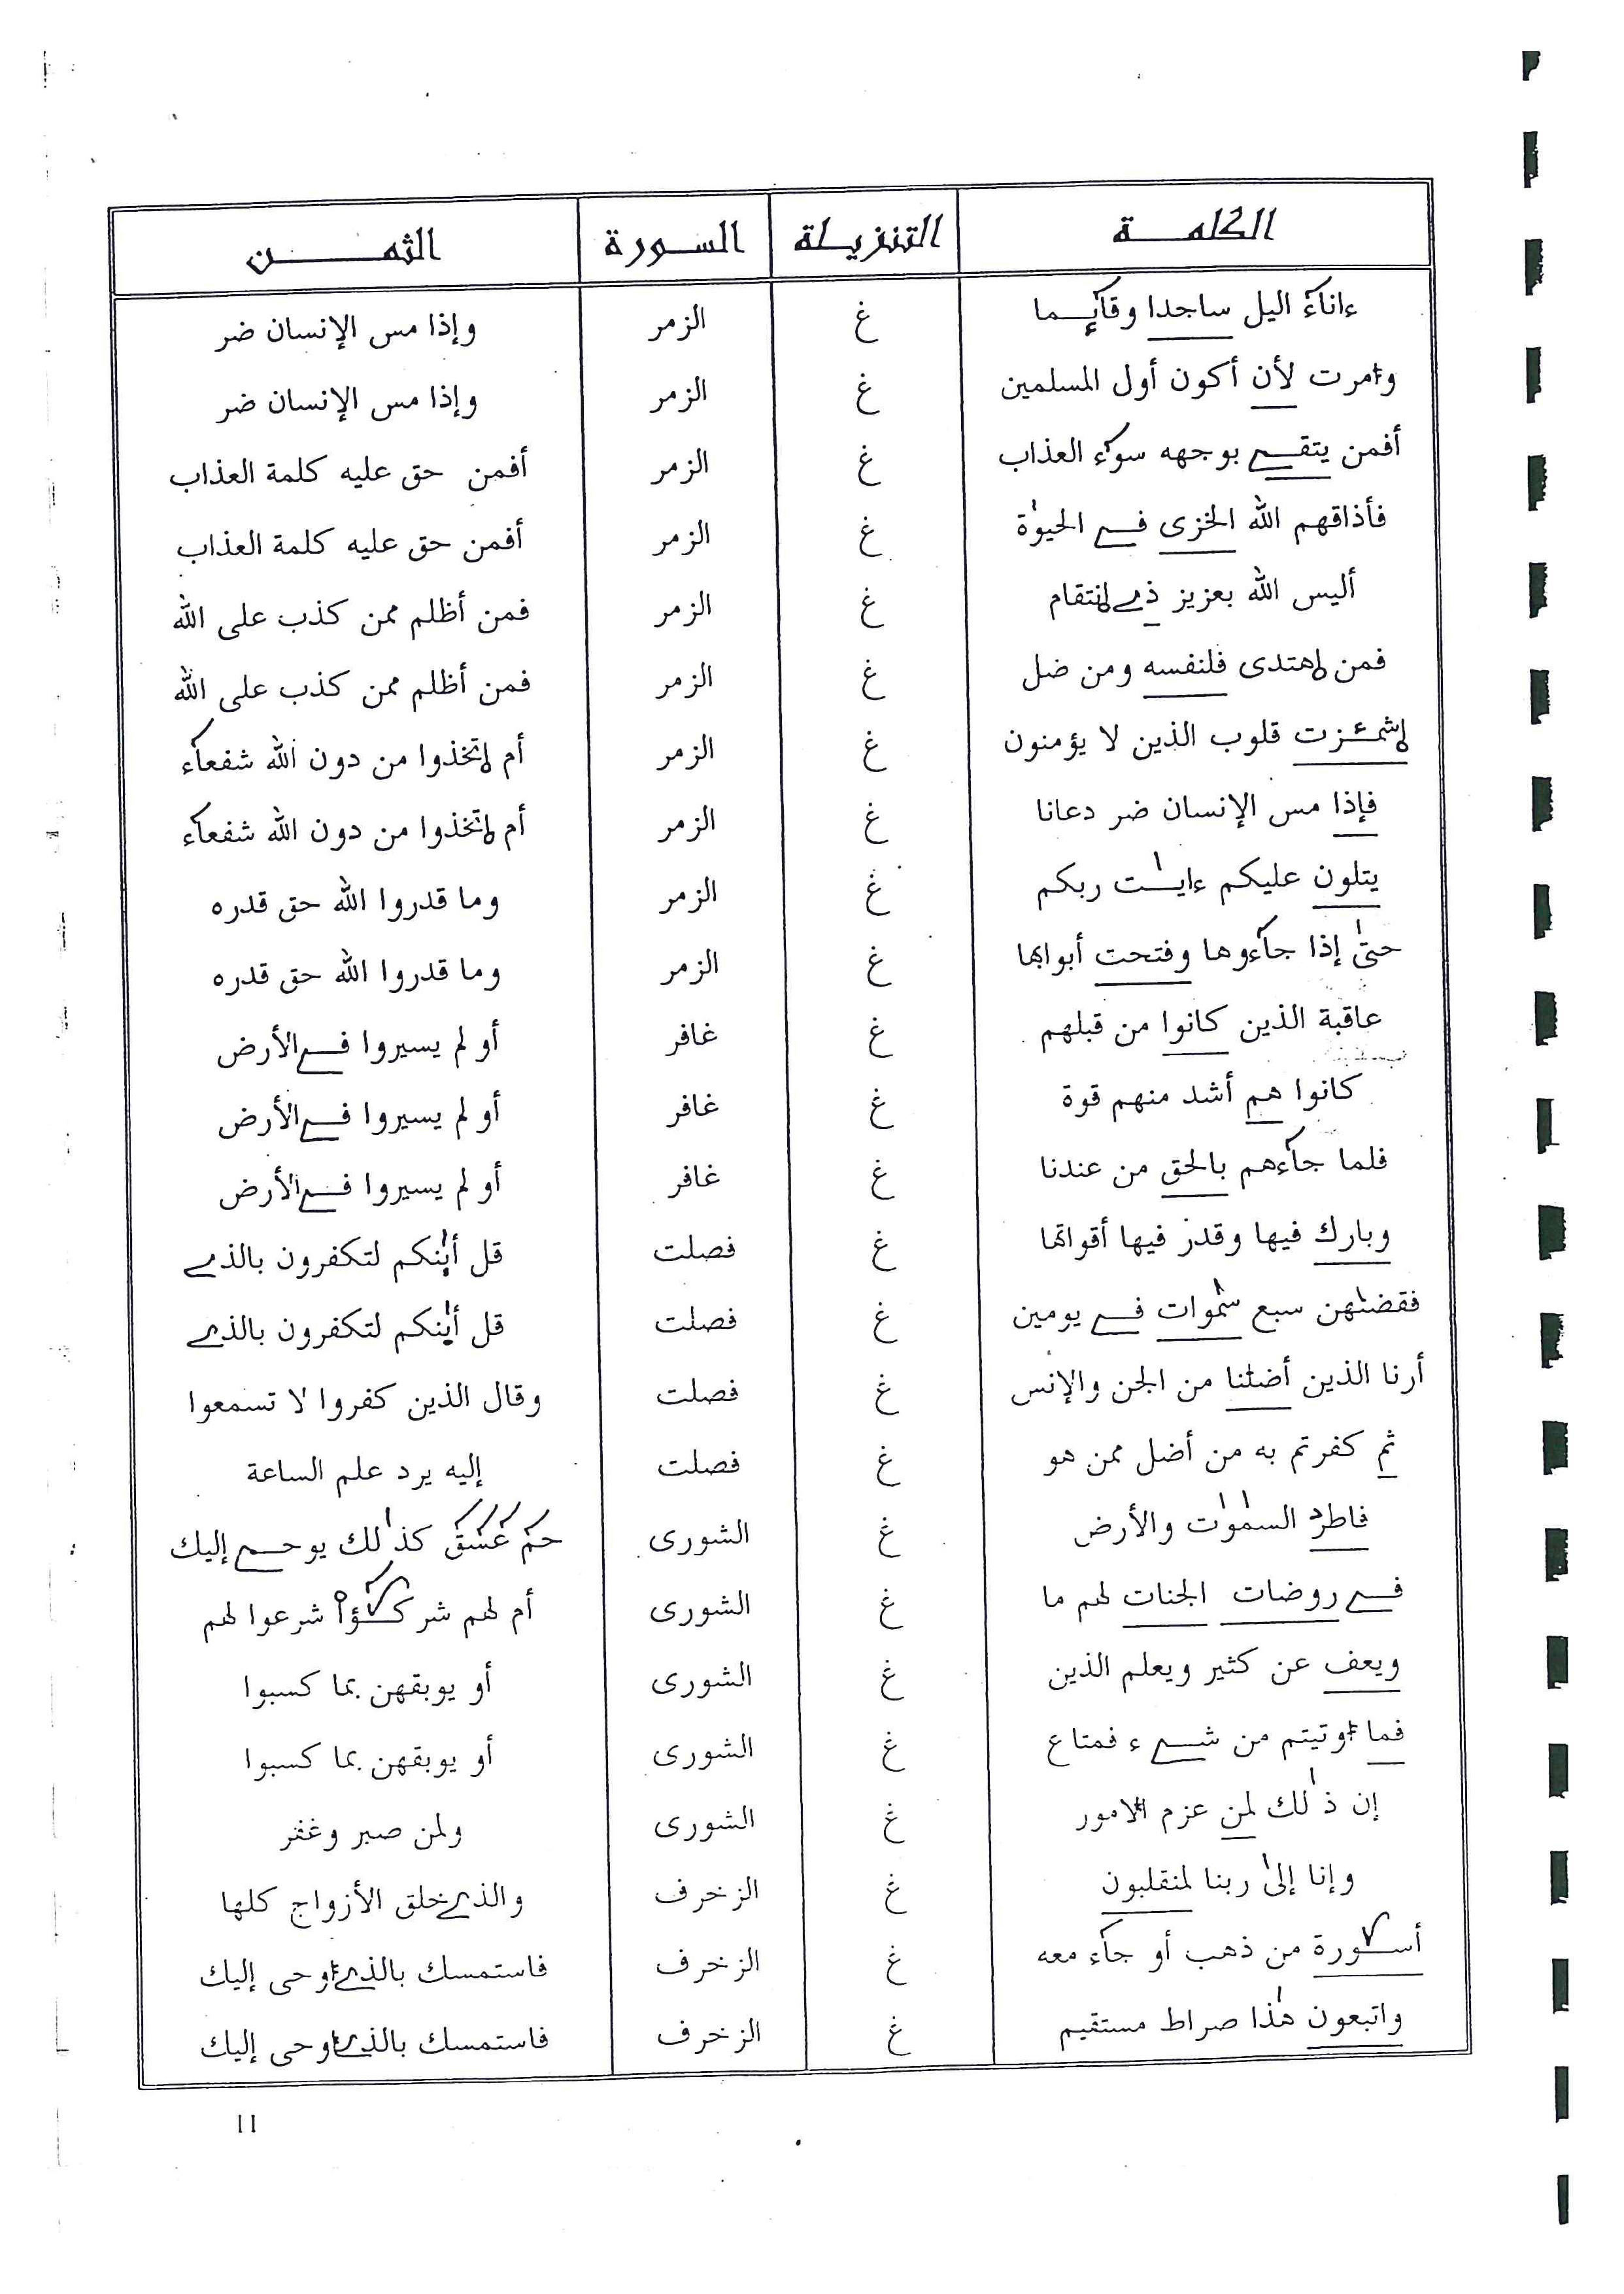 الكلمة التنزيلة السورة الثمن
ءاناء اليل ساجدا وقائما غ الزمر وإذا مس الإنسان ضر
وامرت لأن أكون أول المسلمين غ الزمر وإذا مس الإنسان ضر
أفمن يتقي بوجهه سوء العذاب غ الزمر أفمن حق عليه كلمة العذاب
فأذاقهم الله الخزى في الحيوٰة غ الزمر أفمن حق عليه كلمة العذاب
أليس الله بعزيز ذي انتقام غ الزمر فمن أظلم ممن كذب على الله
فمن اهتدى فلنفسه ومن ضل غ الزمر فمن أظلم ممن كذب على الله
اشمئزت قلوب الذين لا يؤمنون غ الزمر أم اتخذوا من دون الله شفعاء
فإذا مس الإنسان ضر دعانا غ الزمر أم اتخذوا من دون الله شفعاء
يتلون عليكم ءايٰت ربكم غ الزمر وما قدروا الله حق قدره
حتىٰ إذا جاءوها وفتحت أبوابها غ الزمر وما قدروا الله حق قدره
عاقبة الذين كانوا من قبلهم غ غافر أو لم يسيروا في الأرض
كانوا هم أشد منهم قوة غ غافر أو لم يسيروا في الأرض
فلما جاءهم بالحق من عندنا غ غافر أو لم يسيروا في الأرض
وبارك فيها وقدر فيها أقواتها غ فصلت قل أئنكم لتكفرون بالذي
فقضىٰهن سبع سمٰوات في يومين غ فصلت قل أئنكم لتكفرون بالذي
أرنا الذين أضلٰنا من الجن والإنس غ فصلت وقال الذين كفروا لا تسمعوا
ثم كفرتم به من أضل ممن هو غ فصلت إليه يرد علم الساعة
فاطر السمٰوٰت والأرض غ الشورى حم عسق كذٰلك يوحي إليك
في روضات الجنات لهم ما غ الشورى أم لهم شركٰؤا شرعوا لهم
ويعف عن كثير ويعلم الذين غ الشورى أو يوبقهن بما كسبوا
فما اوتيتم من شيء فمتاع غ الشورى أو يوبقهن بما كسبوا
إن ذٰلك لمن عزم الامور غ الشورى ولمن صبر وغفر
وإنا إلىٰ ربنا لمنقلبون غ الزخرف والذي خلق الأزواج كلها
أسٰورة من ذهب أو جاء معه غ الزخرف فاستمسك بالذي اوحى إليك
واتبعون هٰذا صراط مستقيم غ الزخرف فاستمسك بالذي اوحى إليك
11